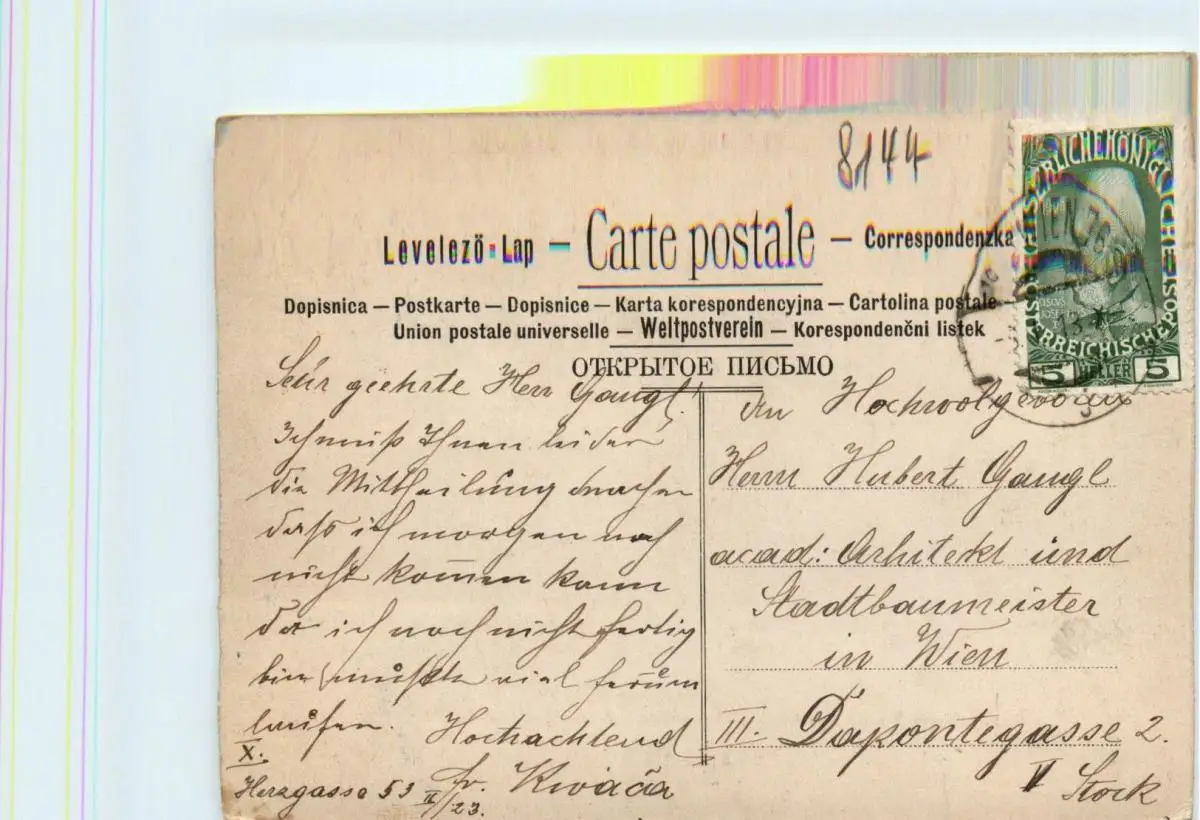 8144
Levelező-Lap — Carte postale — Correspondenzka
Dopisnica — Postkarte — Dopisnice — Karta korespondencyjna — Cartolina postale —
Union postale universelle — Weltpostverein — Korespondenčni listek
ОТКРЫТОЕ ПИСЬМО
5 HELLER 5
Sehr geehrte Herr Gangl!
Ich muß Ihnen leider
die Mittheilung machen
dass ich morgen noch
nicht kommen kann
da ich noch nicht fertig
bin musste viel herum
laufen.
Hochachtend
Fr. Kwača
X.
Herzgasse 53 II/23.
An Hochwolgeboren
Herrn Hubert Gangl
acad: Arhitekt und
Stadtbaumeister
in Wien
III. Dapontegasse 2.
V Stock